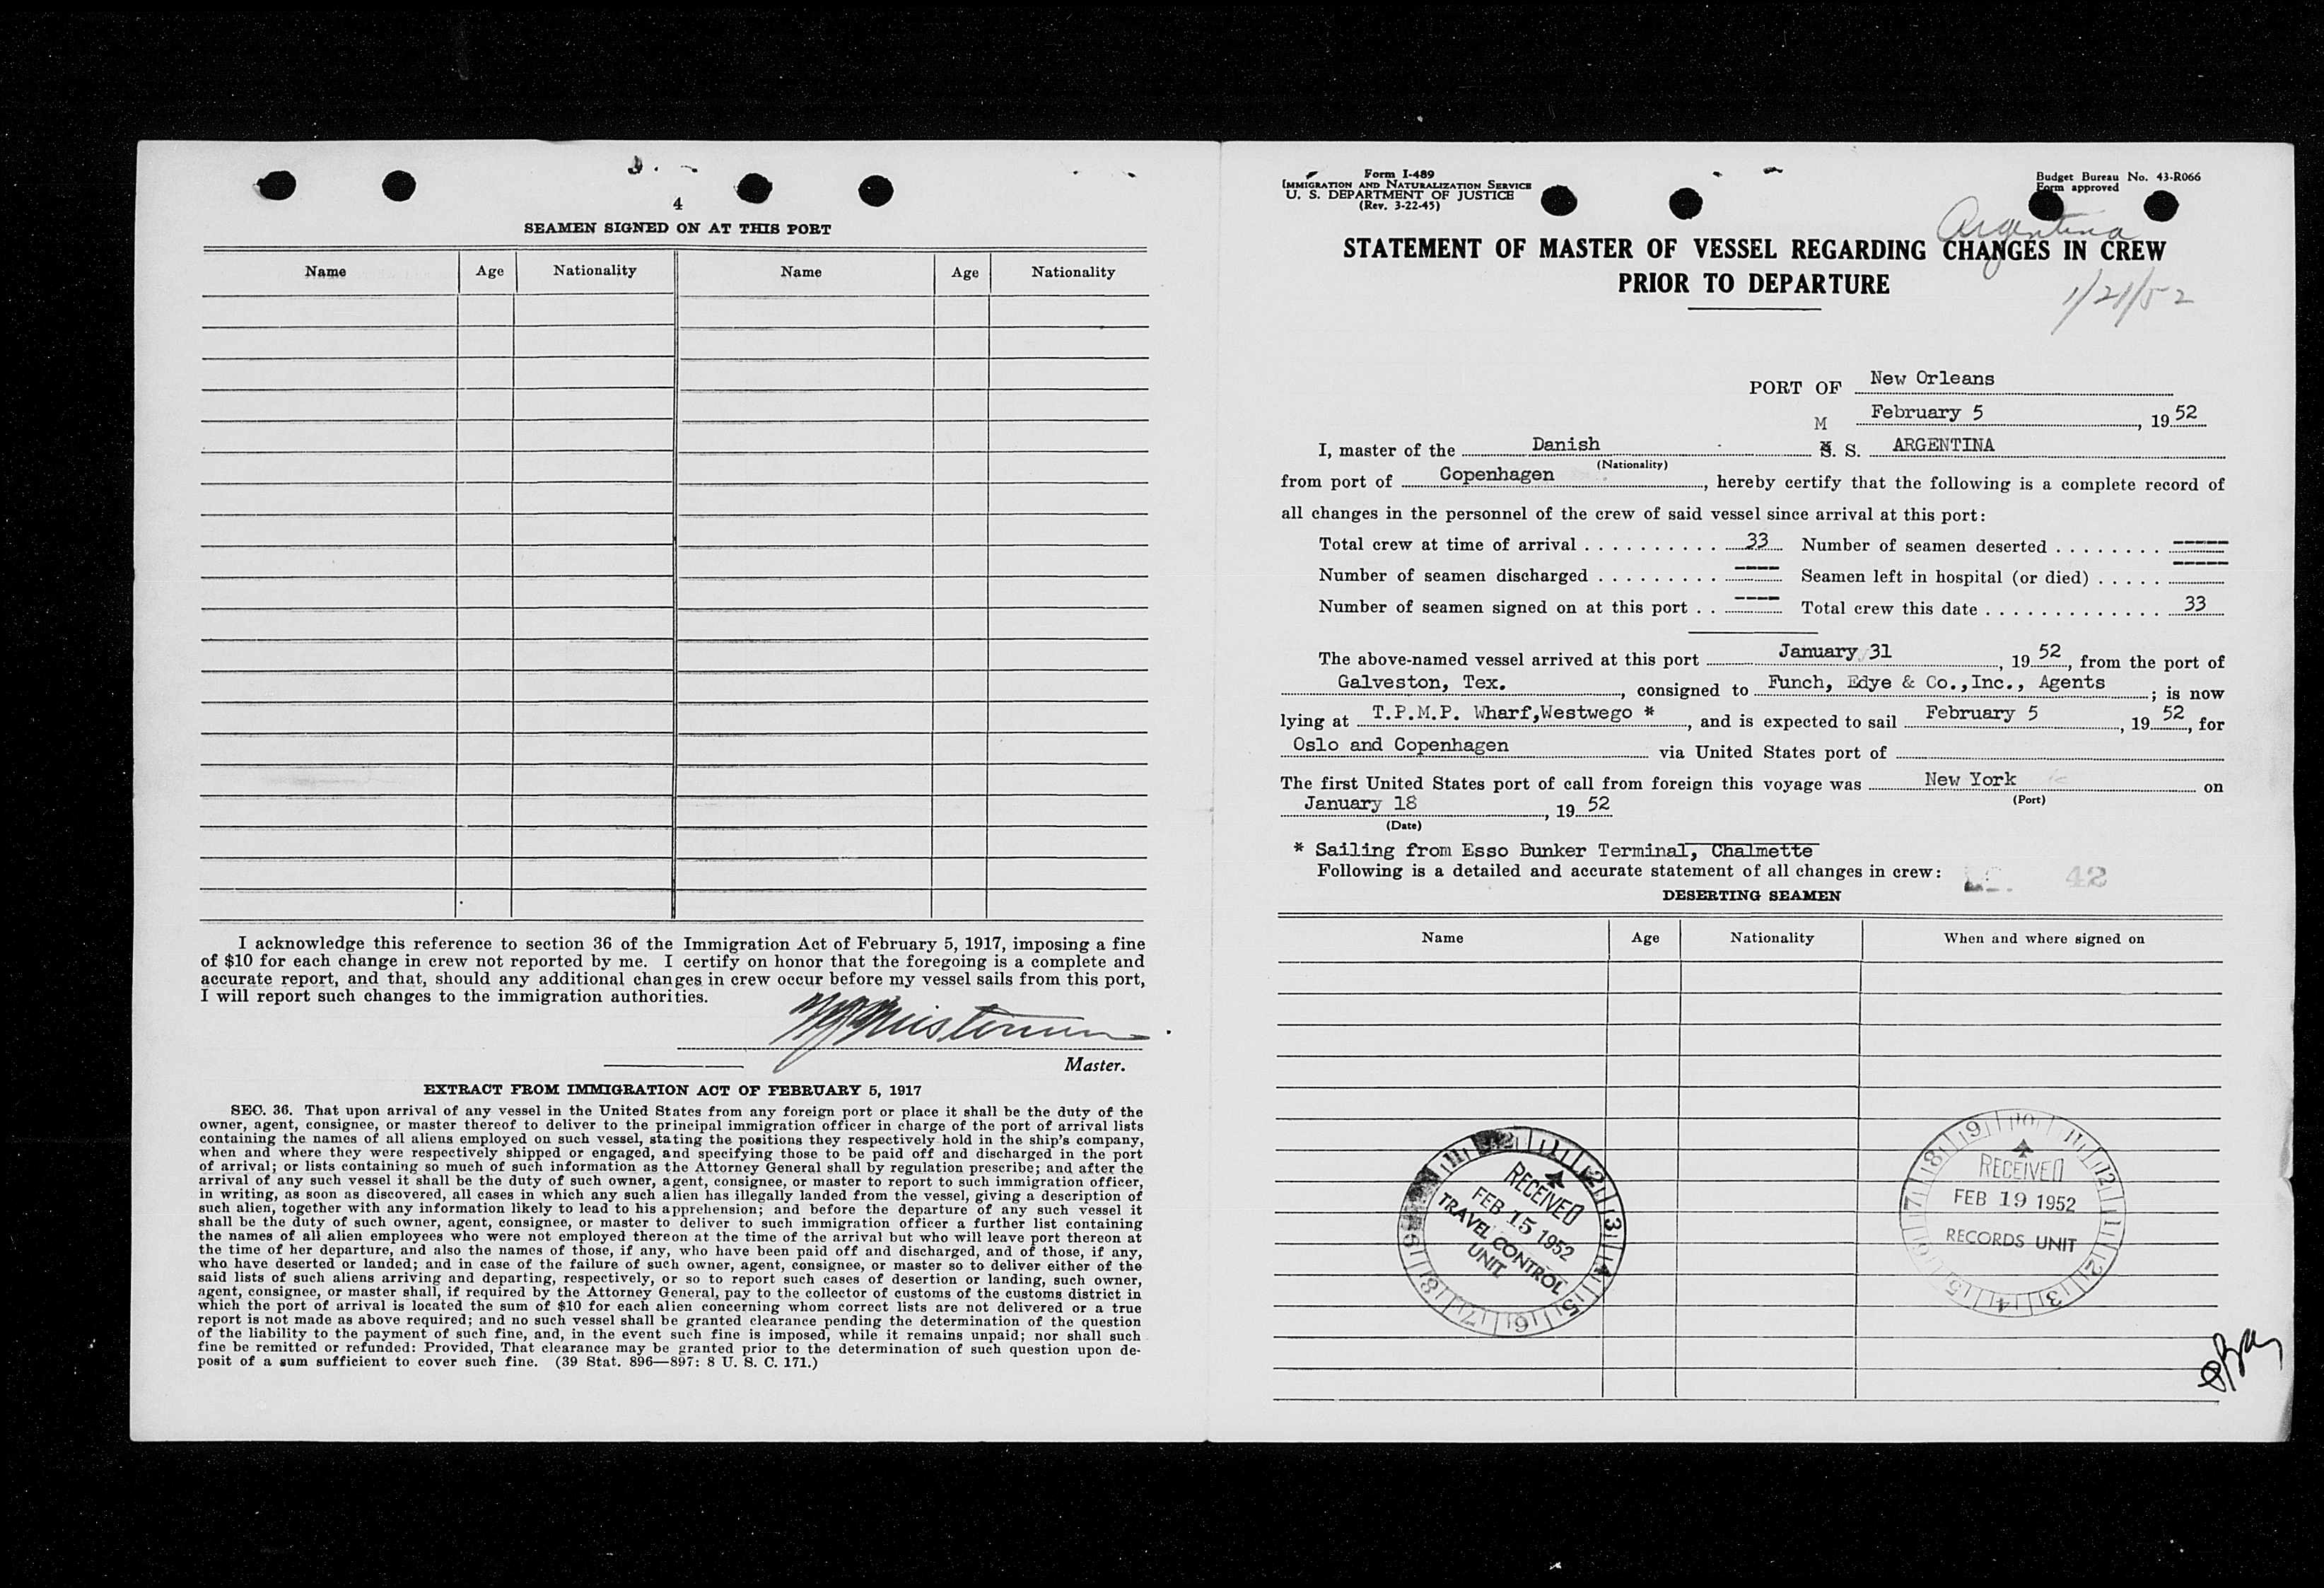 4
SEAMEN SIGNED ON AT THIS PORT
Name Age Nationality Name Age Nationality
I acknowledge this reference to section 36 of the Immigration Act of February 5, 1917, imposing a fine
of $10 for each change in crew not reported by me. I certify on honor that the foregoing is a complete and
accurate report, and that, should any additional changes in crew occur before my vessel sails from this port,
I will report such changes to the immigration authorities.
Master.
EXTRACT FROM IMMIGRATION ACT OF FEBRUARY 5, 1917
SEC. 36. That upon arrival of any vessel in the United States from any foreign port or place it shall be the duty of the
owner, agent, consignee, or master thereof to deliver to the principal immigration officer in charge of the port of arrival lists
containing the names of all aliens employed on such vessel, stating the positions they respectively hold in the ship's company,
when and where they were respectively shipped or engaged, and specifying those to be paid off and discharged in the port
of arrival; or lists containing so much of such information as the Attorney General shall by regulation prescribe; and after the
arrival of any such vessel it shall be the duty of such owner, agent, consignee, or master to report to such immigration officer,
in writing, as soon as discovered, all cases in which any such alien has illegally landed from the vessel, giving a description of
such alien, together with any information likely to lead to his apprehension; and before the departure of any such vessel it
shall be the duty of such owner, agent, consignee, or master to deliver to such immigration officer a further list containing
the names of all alien employees who were not employed thereon at the time of the arrival but who will leave port thereon at
the time of her departure, and also the names of those, if any, who have been paid off and discharged, and of those, if any,
who have deserted or landed; and in case of the failure of such owner, agent, consignee, or master so to deliver either of the
said lists of such aliens arriving and departing, respectively, or so to report such cases of desertion or landing, such owner,
agent, consignee, or master shall, if required by the Attorney General, pay to the collector of customs of the customs district in
which the port of arrival is located the sum of $10 for each alien concerning whom correct lists are not delivered or a true
report is not made as above required; and no such vessel shall be granted clearance pending the determination of the question
of the liability to the payment of such fine, and, in the event such fine is imposed, while it remains unpaid; nor shall such
fine be remitted or refunded: Provided, That clearance may be granted prior to the determination of such question upon de-
posit of a sum sufficient to cover such fine. (39 Stat. 896—897: 8 U. S. C. 171.)
Form I-489
IMMIGRATION AND NATURALIZATION SERVICE
U. S. DEPARTMENT OF JUSTICE
(Rev. 3-22-45)
Budget Bureau No. 43-R066
Form approved
Argentina
STATEMENT OF MASTER OF VESSEL REGARDING CHANGES IN CREW
PRIOR TO DEPARTURE
1/21/52
PORT OF New Orleans
M February 5, 1952
I, master of the Danish S. S. ARGENTINA
(Nationality)
from port of Copenhagen, hereby certify that the following is a complete record of
all changes in the personnel of the crew of said vessel since arrival at this port:
Total crew at time of arrival . . . . . . . . . . 33 Number of seamen deserted . . . . . . . . -----
Number of seamen discharged . . . . . . . . . ---- Seamen left in hospital (or died) . . . . . -----
Number of seamen signed on at this port . . ---- Total crew this date . . . . . . . . . . . . . . 33
The above-named vessel arrived at this port January 31, 1952, from the port of
Galveston, Tex., consigned to Funch, Edye & Co.,Inc., Agents; is now
lying at T.P.M.P. Wharf,Westwego *, and is expected to sail February 5, 1952, for
Oslo and Copenhagen via United States port of
The first United States port of call from foreign this voyage was New York on
(Port)
January 18, 1952
(Date)
* Sailing from Esso Bunker Terminal, Chalmette
Following is a detailed and accurate statement of all changes in crew:
42
DESERTING SEAMEN
Name Age Nationality When and where signed on
RECEIVED
FEB 15 1952
TRAVEL CONTROL
UNIT
RECEIVED
FEB 19 1952
RECORDS UNIT